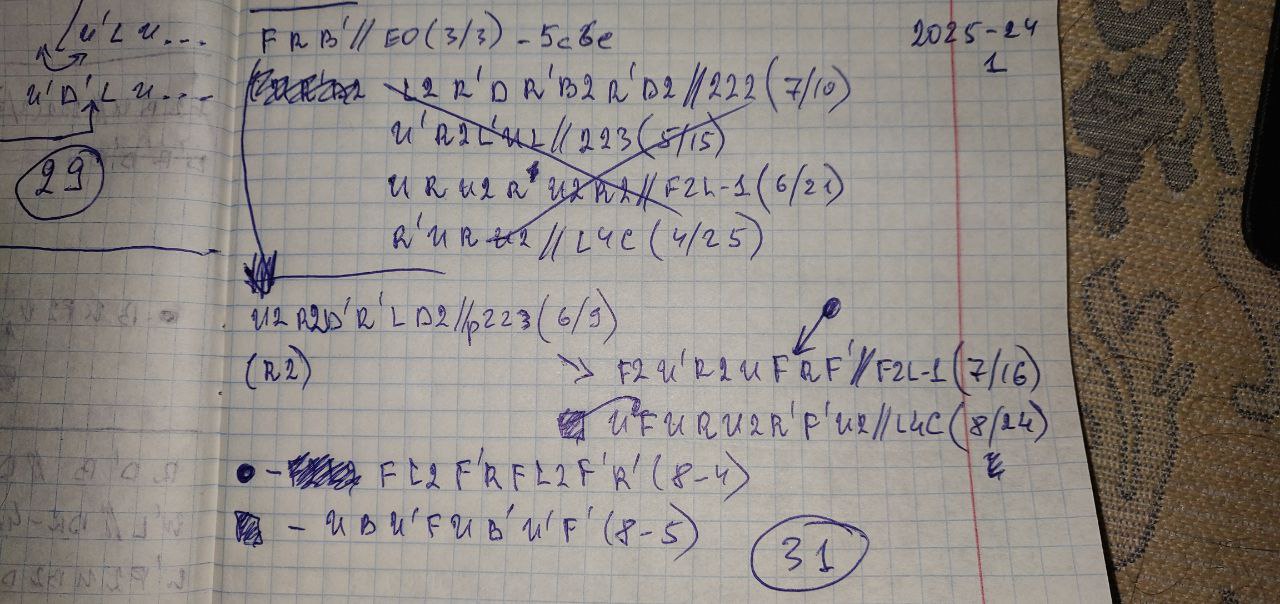 U' L U...
U' D' L U....
29
F R B' // EO (3/3) - 5c6e
2025-24
1
L2 R' D R' B2 R' D2 // 222 (7/10)
U' R2 L' U L // 223 (5/15)
U R U2 R' U2 R2 // F2L-1 (6/21)
R' U R U2 // L4C (4/25)
U2 R2 D' R' L D2 // p223 (6/9)
(R2)
F2 U' R2 U F R F' // F2L-1 (7/16)
U' F U R U2 R' F' U2 // L4C (8/24)
- F L2 F' R F L2 F' R' (8-4)
- U B U' F U B' U' F' (8-5)
31